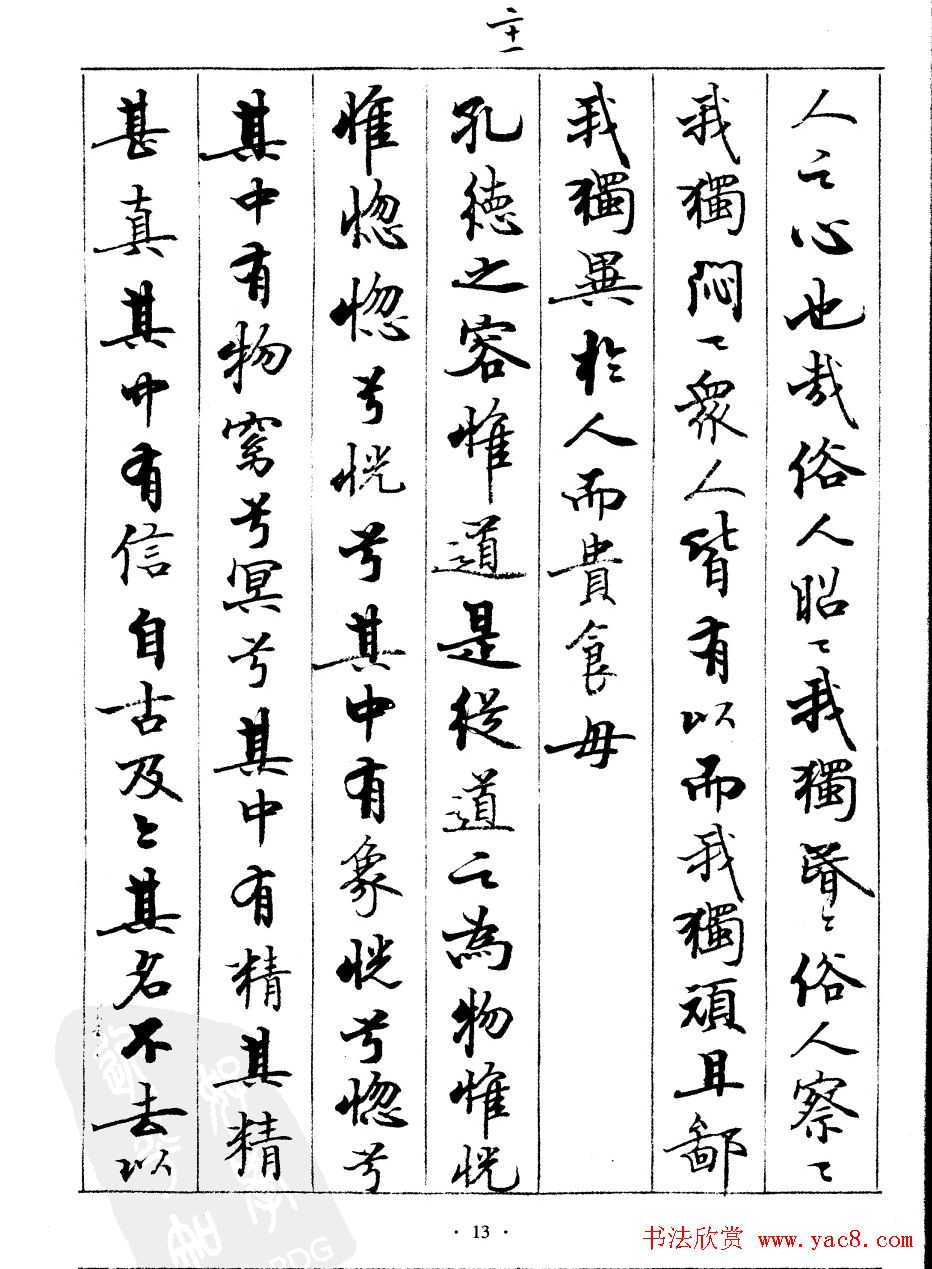 二十一
人之心也哉俗人昭〻我獨昬〻俗人察〻
我獨悶〻衆人皆有以而我獨頑且鄙
我獨異於人而貴食母
孔德之容惟道是從道之為物惟恍
惟惚惚兮恍兮其中有象恍兮惚兮
其中有物窈兮冥兮其中有精其精
甚真其中有信自古及今其名不去以
· 13 ·
书法欣赏 www.yac8.com
PDG